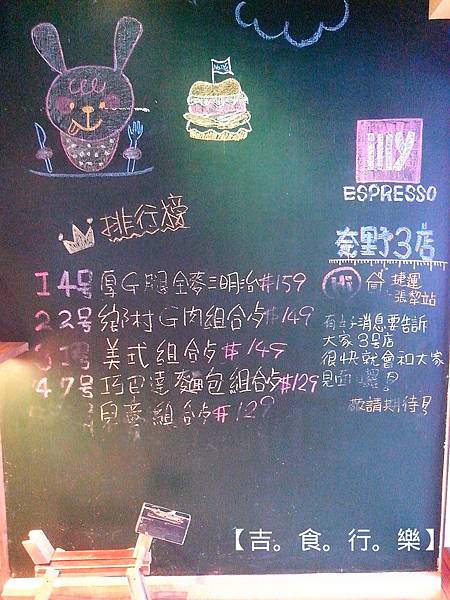 illy
ESPRESSO
排行榜
奈野3店
1 4号 厚G腿全麥三明治#159
捷運
張犂站
2 2号 鄉村G肉組合歺#149
有好消息要告訴
大家3号店
3 1号 美式組合歺#149
很快就會和大家
4 7号 巧巴達麵包組合歺#129
見面囉!
兒童組合歺#129
敬請期待!
【吉。食。行。樂】